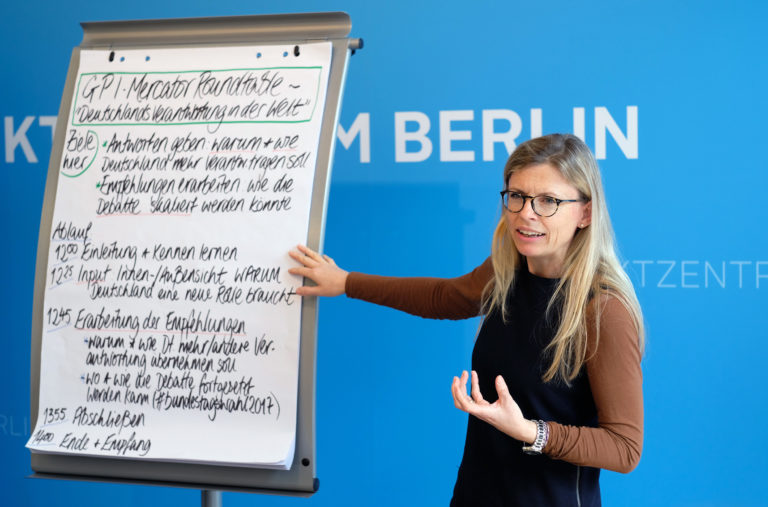 GPI-Mercator Roundtable ~
"Deutschlands Verantwortung in der Welt"
Ziele hier
* Antworten geben: warum + wie
Deutschland mehr Verantw. tragen soll
* Empfehlungen erarbeiten wie die
Debatte skaliert werden könnte
Ablauf
12⁰⁰ Einleitung + Kennen lernen
12²⁵ Input Innen-/Außensicht WARUM
Deutschland eine neue Rolle braucht
12⁴⁵ Erarbeitung der Empfehlungen
- warum + wie Dt mehr/andere Ver-
antwortung übernehmen soll
- wo + wie die Debatte fortgesetzt
werden kann (#Bundestagswahl2017)
13⁵⁵ Abschließen
14⁰⁰ Ende + Empfang
KT
M BERLIN
KTZENTR
ERLIN